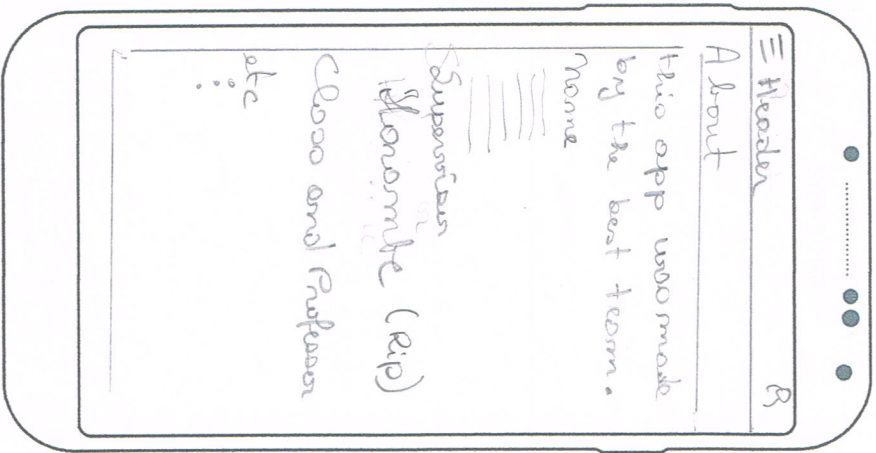 Header
About
this app was made
by the best team.
Name
Supervisor
(Rip)
Class and Professor
etc